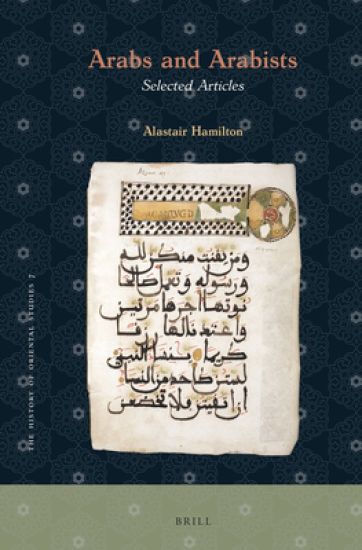 Arabs and Arabists
Selected Articles
Alastair Hamilton
ومن يقنت منكن لله
ورسوله وتعمل صلحا
نوتها اجرها مرتين
واعتدنا لها رزقا
كريما ينسا النبي
لستن كاحد من النسا
ان اتقيتن فلا تخضعن
THE HISTORY OF ORIENTAL STUDIES 7
BRILL